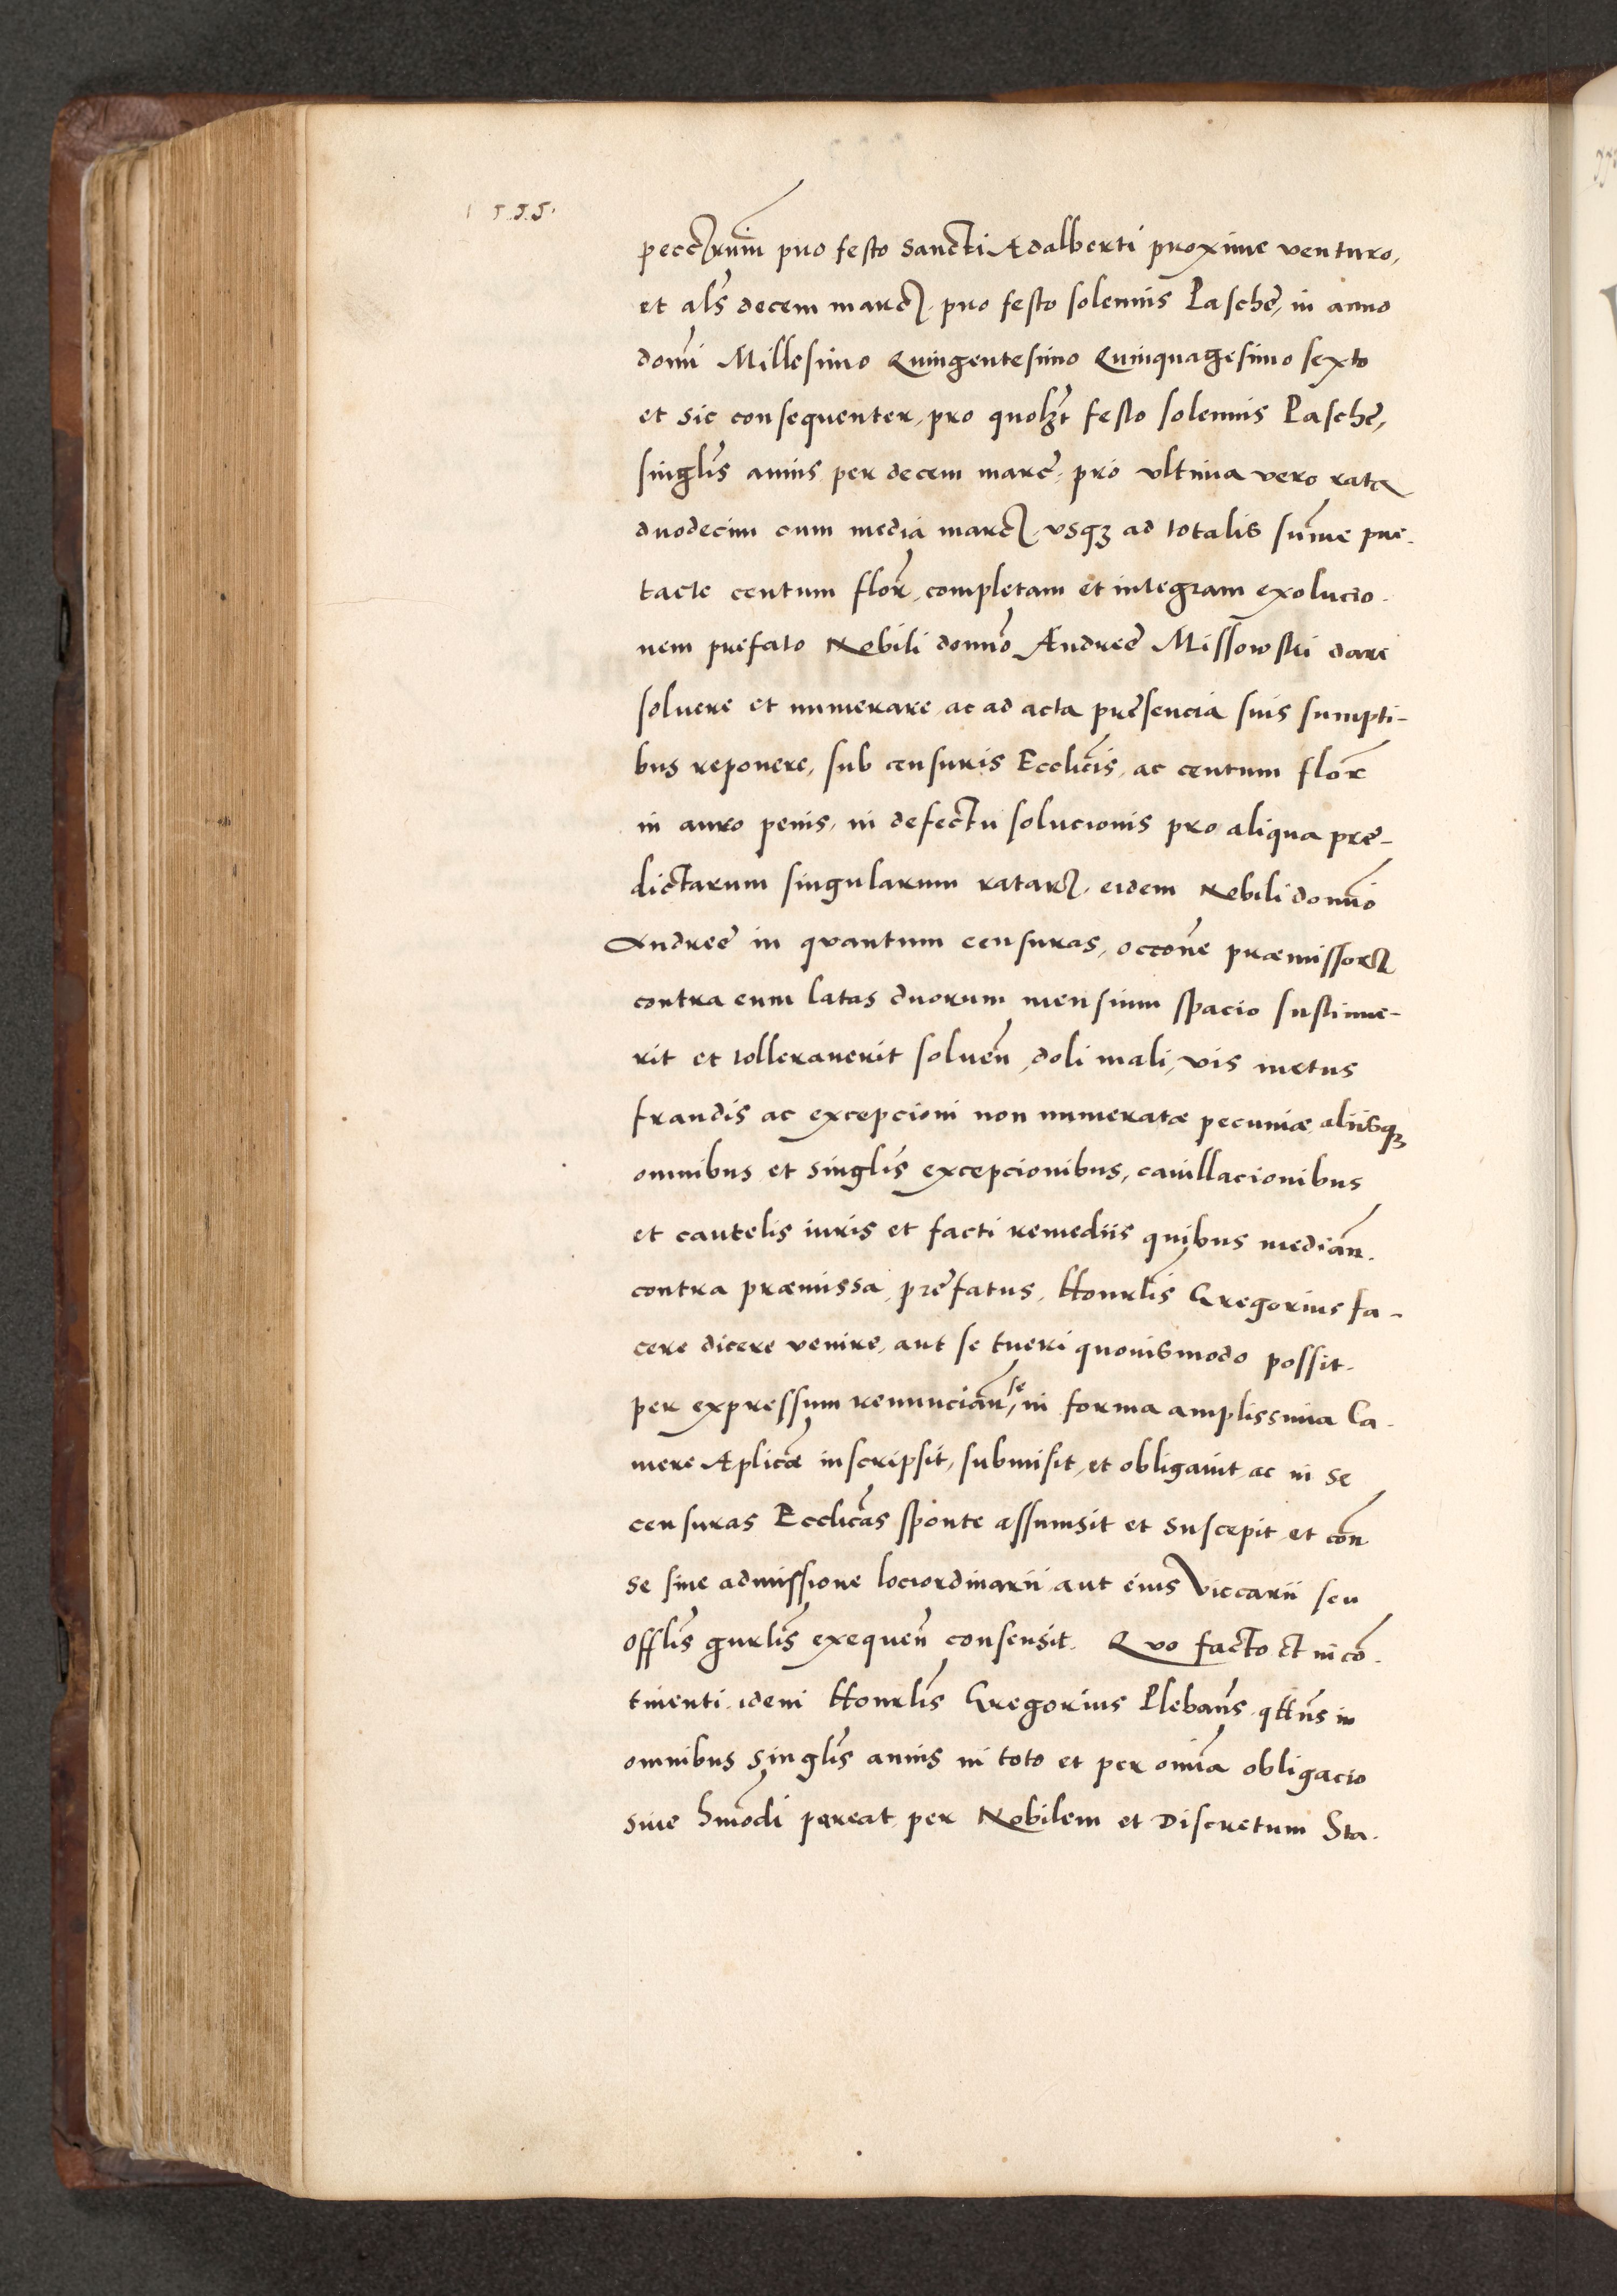 1555.
pro festo Sancti Adalberti proxime venturo,
et als̃ decem marcꝝ. pro festo solennis Paschę, in anno
dom̃i Millesimo Quingentesimo Quinquagesimo sexto
et sic consequenter, pro quolꝫt festo solennis Paschę,
singl̃is annis per decem marc̃. pro vltima vero rata
duodecim cum media marcꝝ vsqꝫ ad totalis sum̃e pre-
tacte centum flor̃, completam et integram exolucio-
nem prefato Nobili domño Andreę Missowski dare
soluere et numerare, ac ad acta pręsencia suis sumpti-
bus reponere, sub censuris Ecclic̃is, ac centum flor̃
in auro penis, in defectu solucionis pro aliqua prę-
dictarum singularum ratarꝝ. eidem Nobili domño
Andreę in quantum censuras, occõne præmissorꝝ
contra eum latas duorum mensium spacio sustinue-
rit et tolleraverit soluen̄, doli mali, vis metus
fraudis ac excepcioni non numeratæ pecuniæ aliisqꝫ
omnibus et singl̃is excepcionibus, cavillacionibus
et cautelis iuris et facti remediis quibus median̄.
contra præmissa, pręfatus, Honrl̃is Gregorius fa-
cere dicere venire, aut se tueri quovismodo possit.
per expressum renuncian̄, se in forma amplissima Ca-
mere Aplicæ inscripsit, submisit, et obligavit, ac in se
censuras Ecclic̃as sponte assumsit et suscepit, et con̄
se sine admissione loci ordinarii aut eius Viccarii seu
Offl̃is gnrl̃is exequen̄ consensit. Quo facto et in cõ-
tinenti, idem Honrl̃is Gregorius Plebañs, in
omnibus singl̃is annis in toto et per om̃ia obligacio
sive hm̃odi pareat, per Nobilem et Discretum Sta-